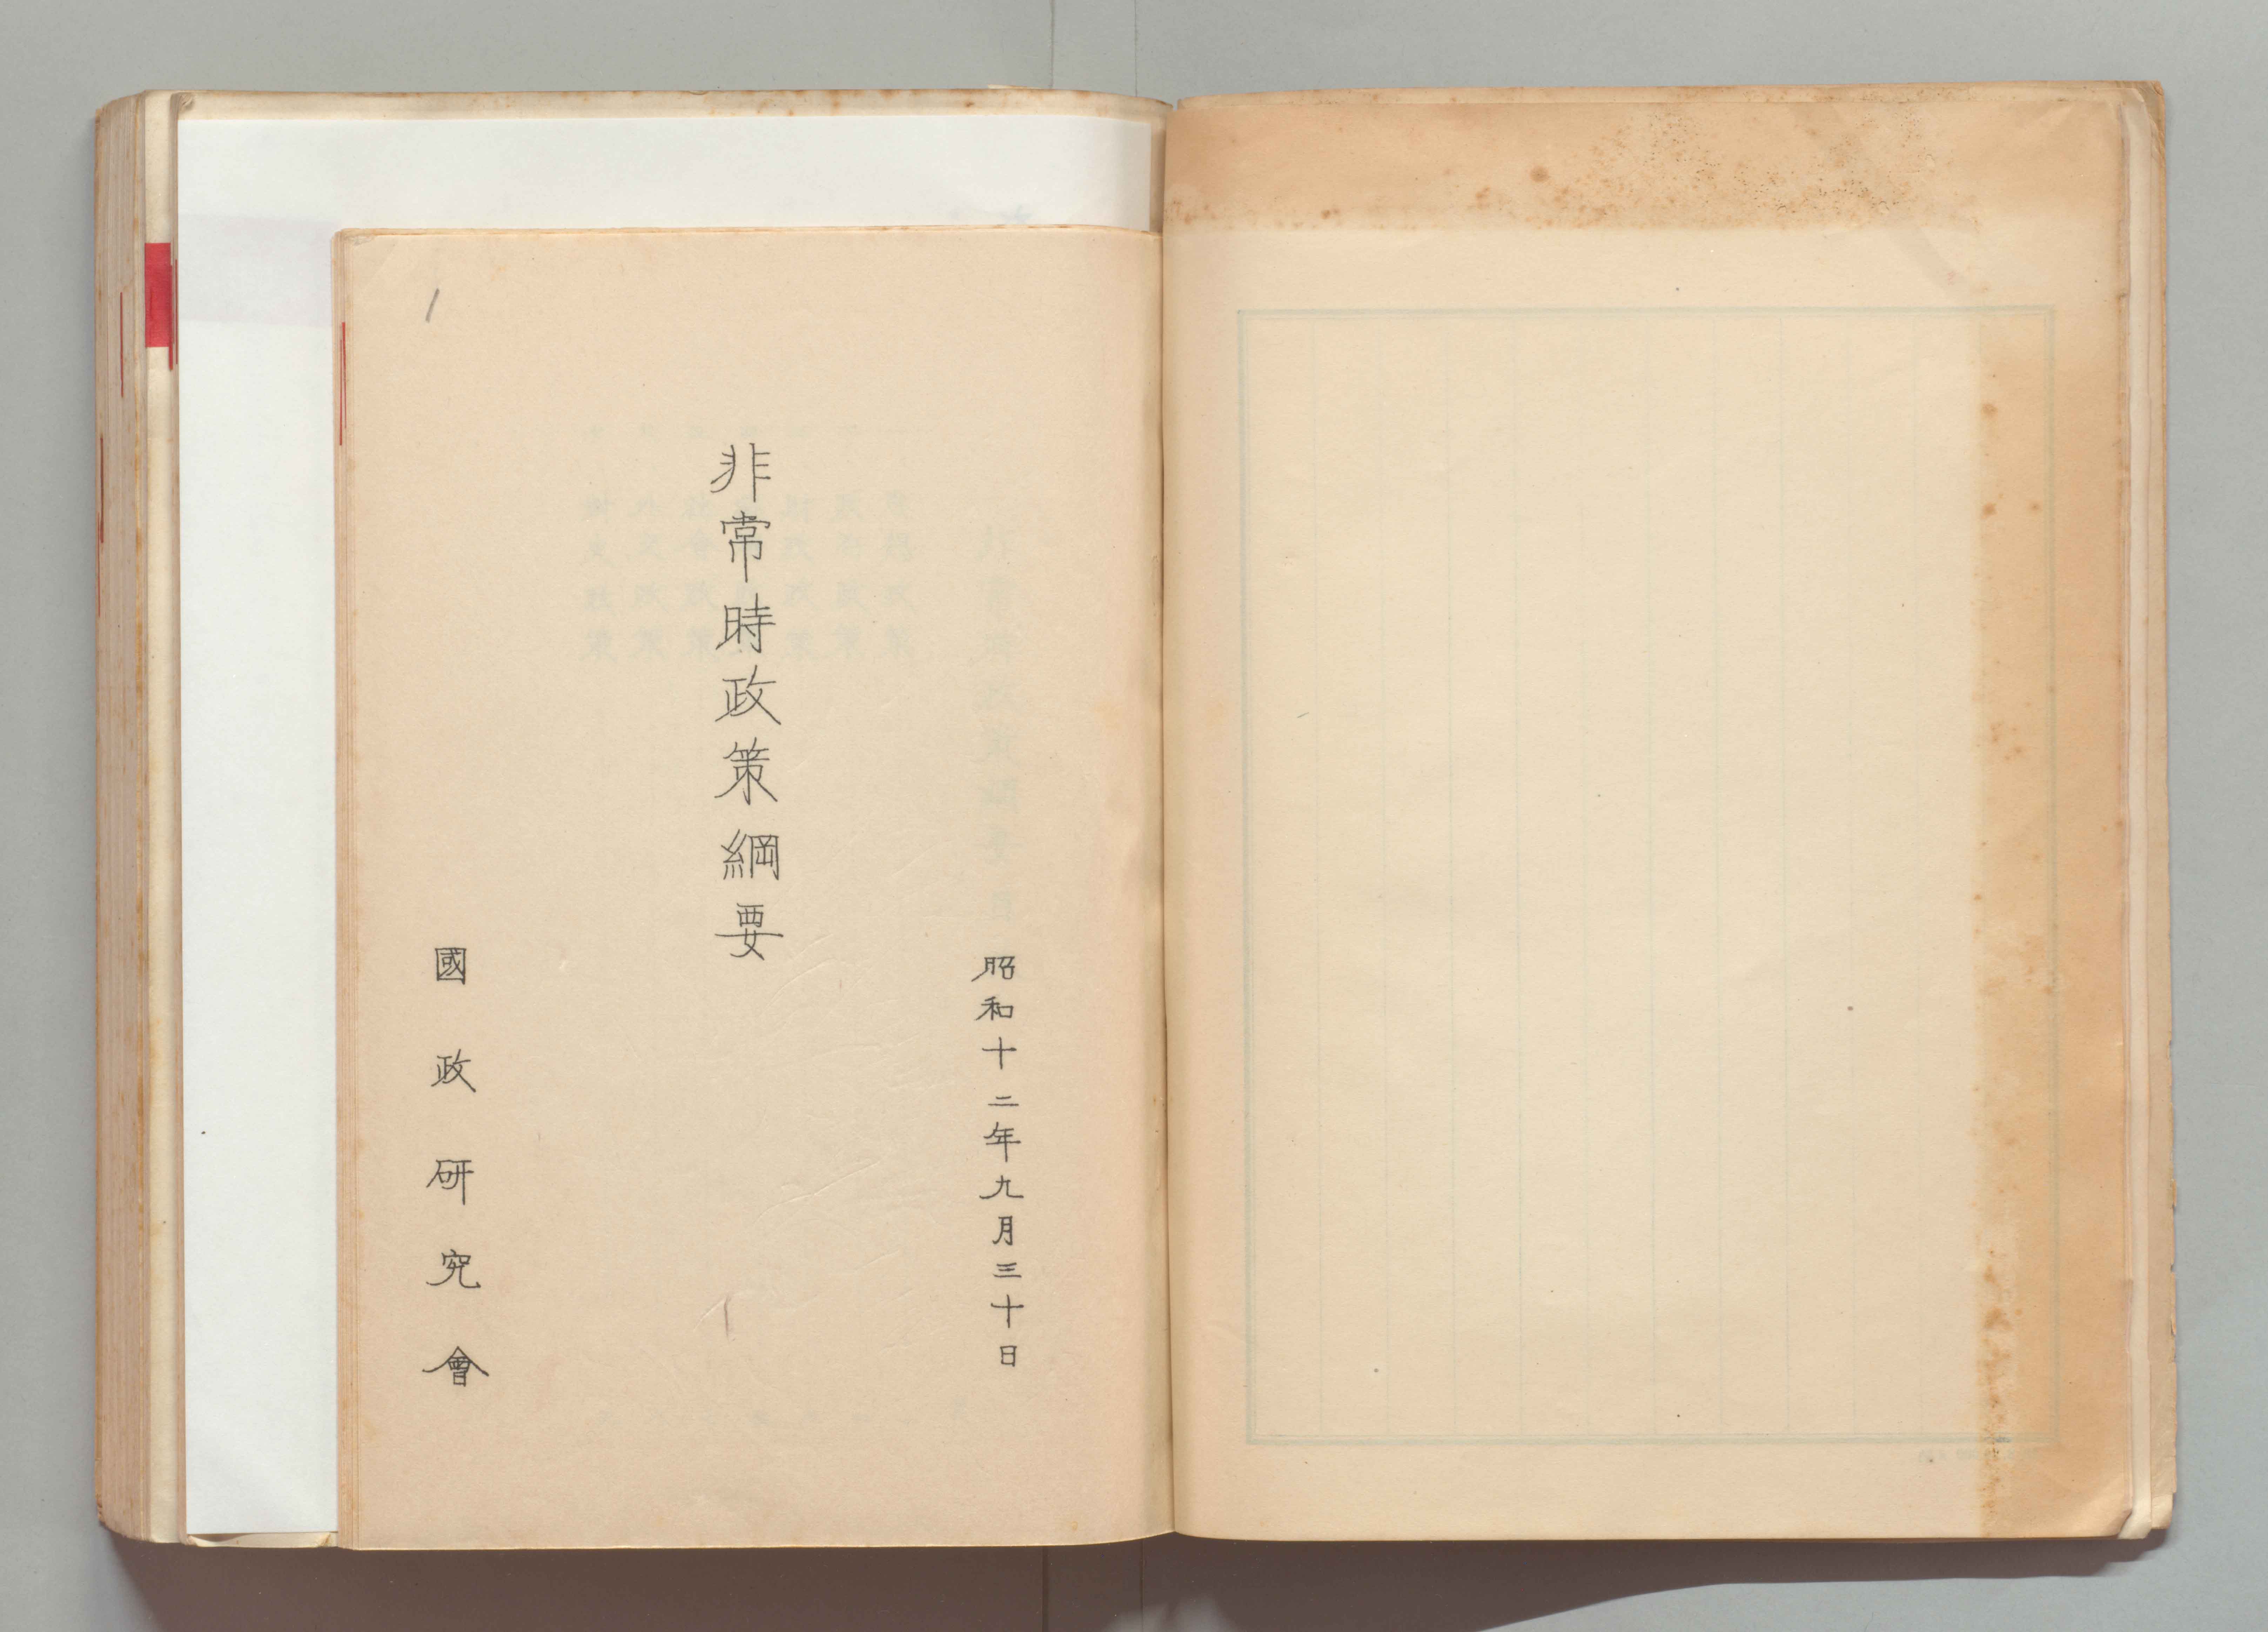 昭和十二年九月三十日
非常時政策綱要
國政研究會